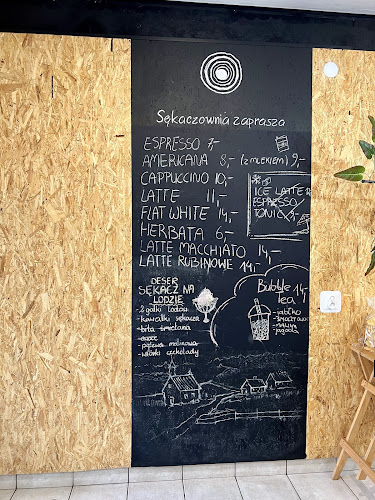 Sękaczownia zaprasza
ESPRESSO 7,-
AMERICANA 8,- (Z MLEKIEM) 9,-
CAPPUCCINO 10,-
LATTE 11,-
FLAT WHITE 14,-
HERBATA 6,-
LATTE MACCHIATO 14,-
LATTE RUBINOWE 14,-
ICE LATTE
ESPRESSO/
TONIC
DESER
SĘKACZ NA
LODZIE
- 2 gałki lodów
- kawałki sękacza
- bita śmietana
- owoc
- polewa malinowa
- wiórki czekolady
Bubble 14,-
tea
- jabłko
- malina
- jagoda